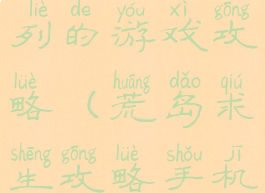 liè de yóu xì gōng
列的游戏攻
lüè huāng dǎo qiú
略（荒岛求
shēng gōng lüè shǒu jī
生攻略手机